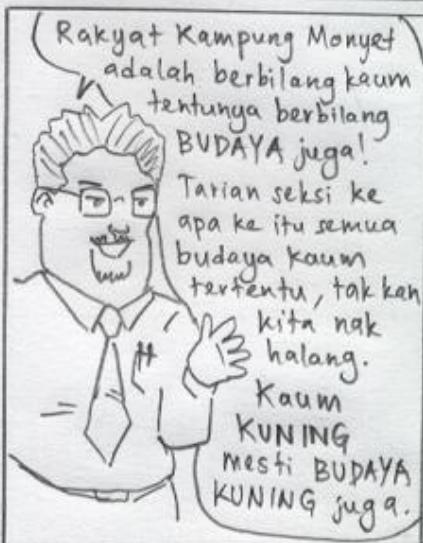 Rakyat Kampung Monyet
adalah berbilang kaum
tentunya berbilang
BUDAYA juga!
Tarian seksi ke
apa ke itu semua
budaya kaum
tertentu, tak kan
kita nak
halang.
Kaum
KUNING
mesti BUDAYA
KUNING juga.